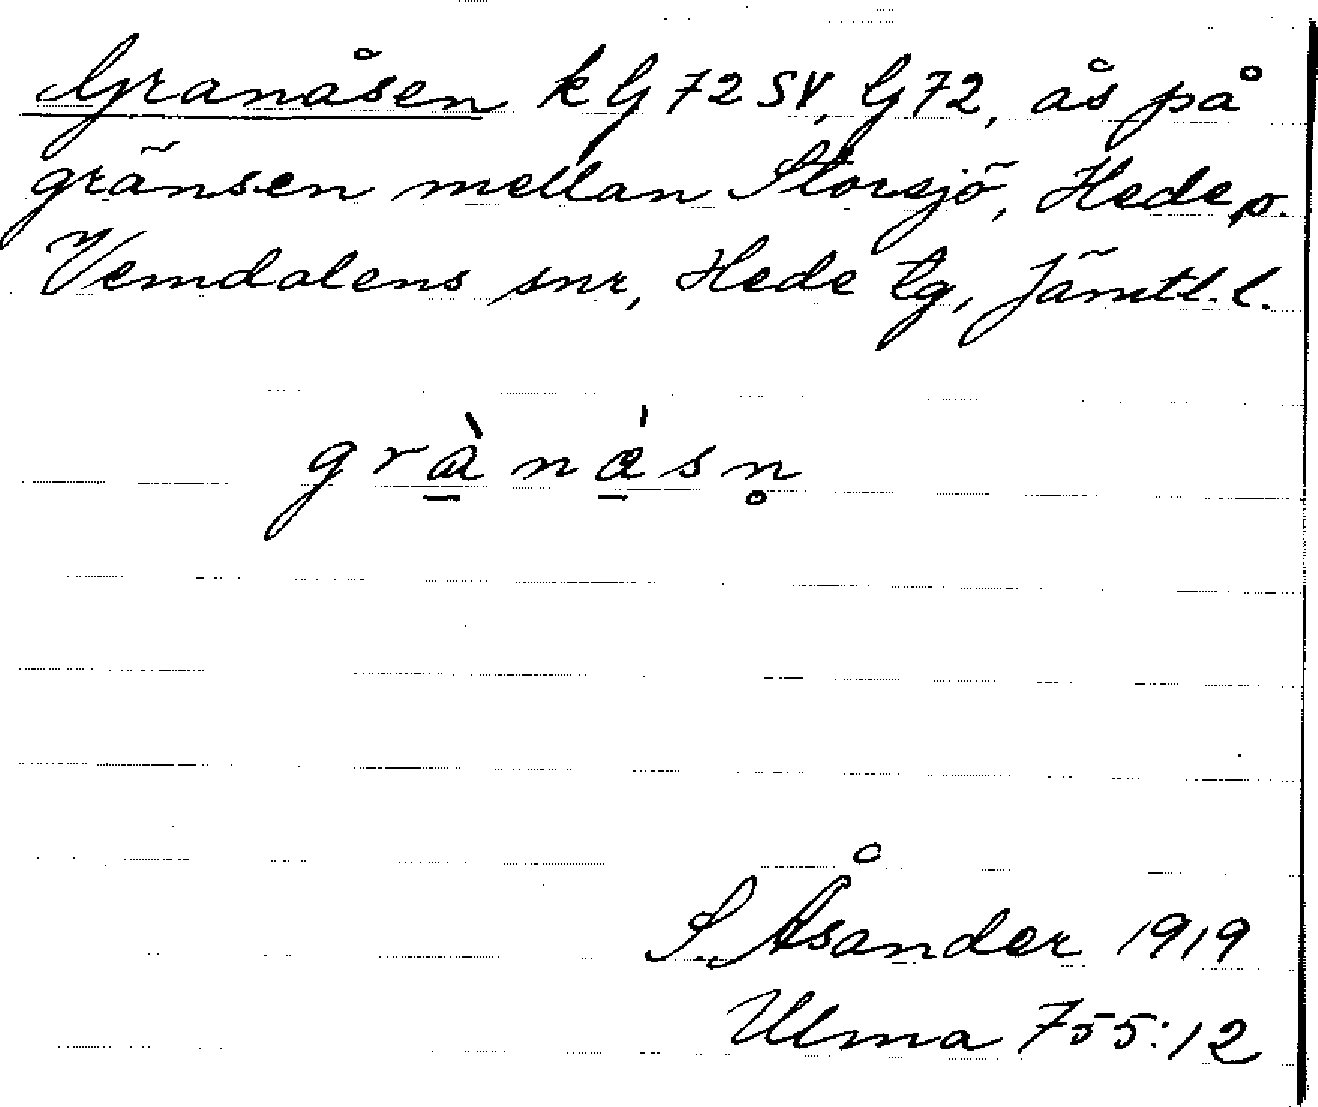 Granåsen kG 72 SV, G 72, ås på
gränsen mellan Storsjö, Hede o.
Vemdalens snr, Hede tg, Jämtl. l.
grànásn̥
S. Åsander 1919
Ulma 755:12